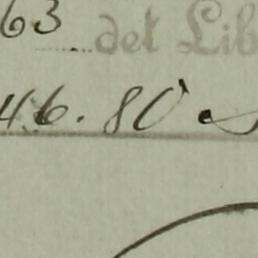 63 del Lib
46. 80